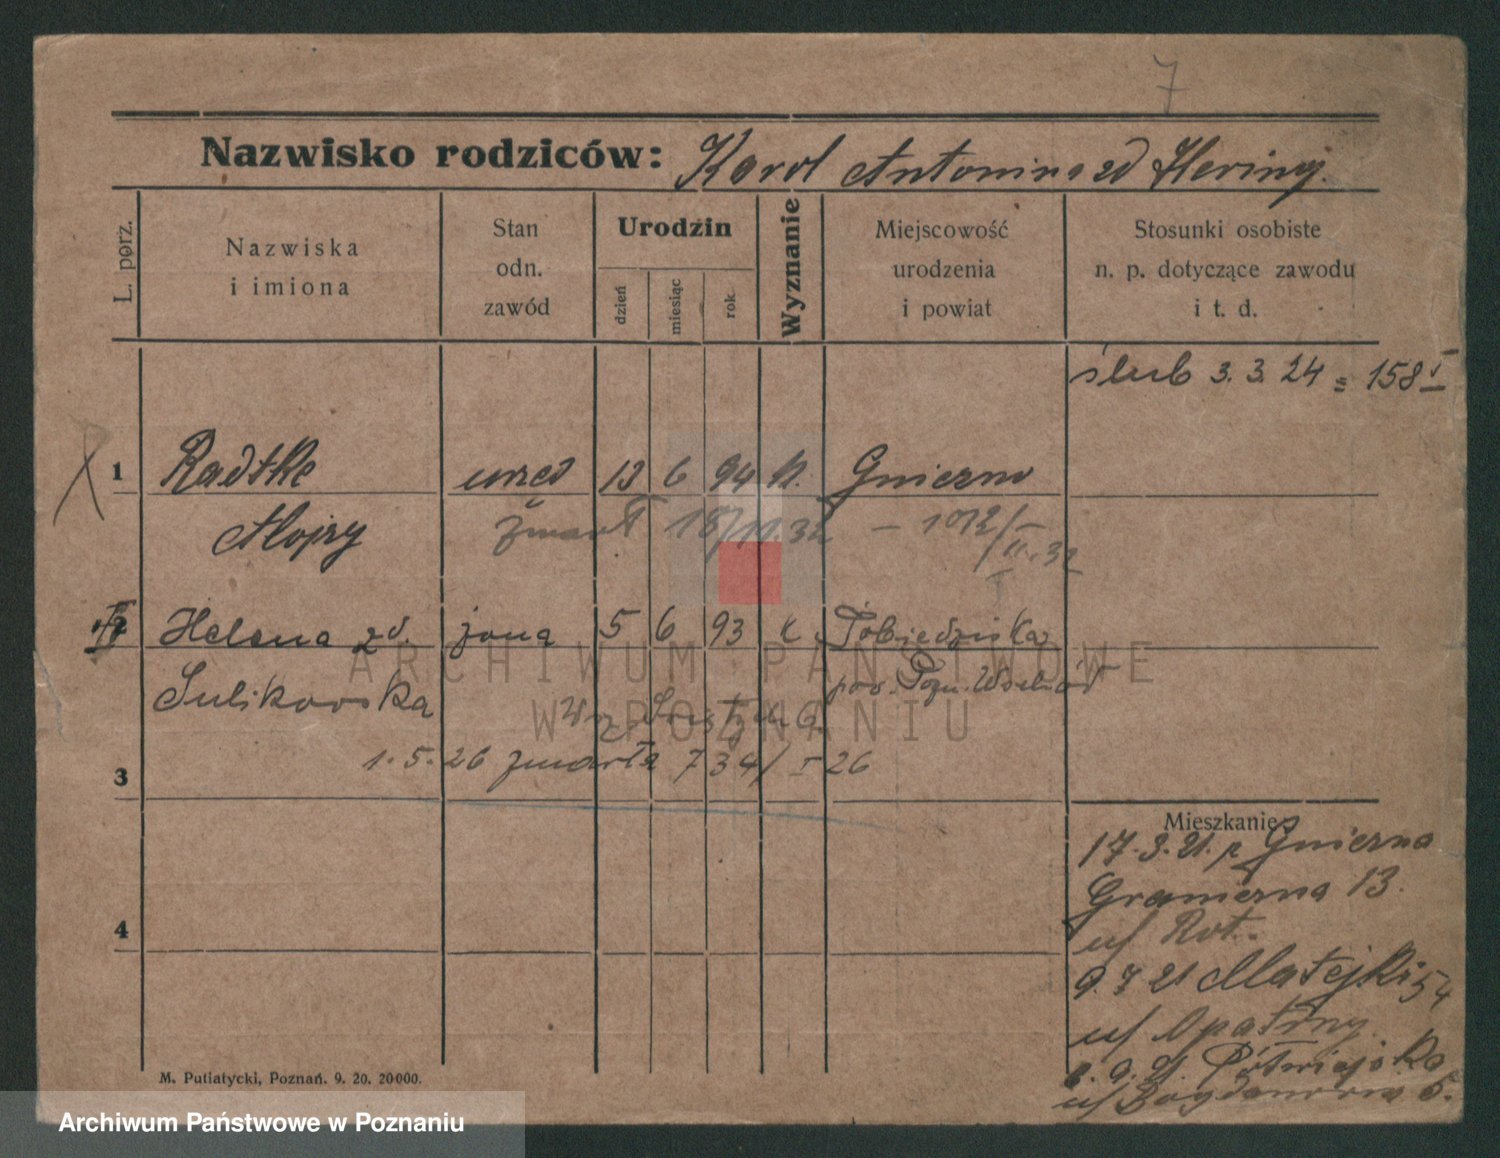 7
Nazwisko rodziców: Karol Antonina zd Hering.
L. porz.
Nazwiska
i imiona
Stan
odn.
zawód
Urodzin
dzień
miesiąc
rok
Wyznanie
Miejscowość
urodzenia
i powiat
Stosunki osobiste
n. p. dotyczące zawodu
i t. d.
ślub 3. 3. 24 = 158 I
1 Radtke urzęd 13 6 94 k. Gniezno
Alojzy zmarł 18/11. 32 – 1012/II. 32
2 Helena zd. żona 5 6 93 k Pobiedziska
Sulikowska pow. Pozn. Wschód
1. 5. 26 zmarła 734/I 26
3
4
Mieszkanie
17. 3. 21. z Gniezna
Graniczna 13.
u/ Rot.
9. 7 21 Matejki 54
u/ Opatrny
9. 21. Półwiejska
u/ Bogdanowa 5.
M. Putiatycki, Poznań. 9. 20. 20000.
ARCHIWUM PAŃSTWOWE
W POZNANIU
Archiwum Państwowe w Poznaniu